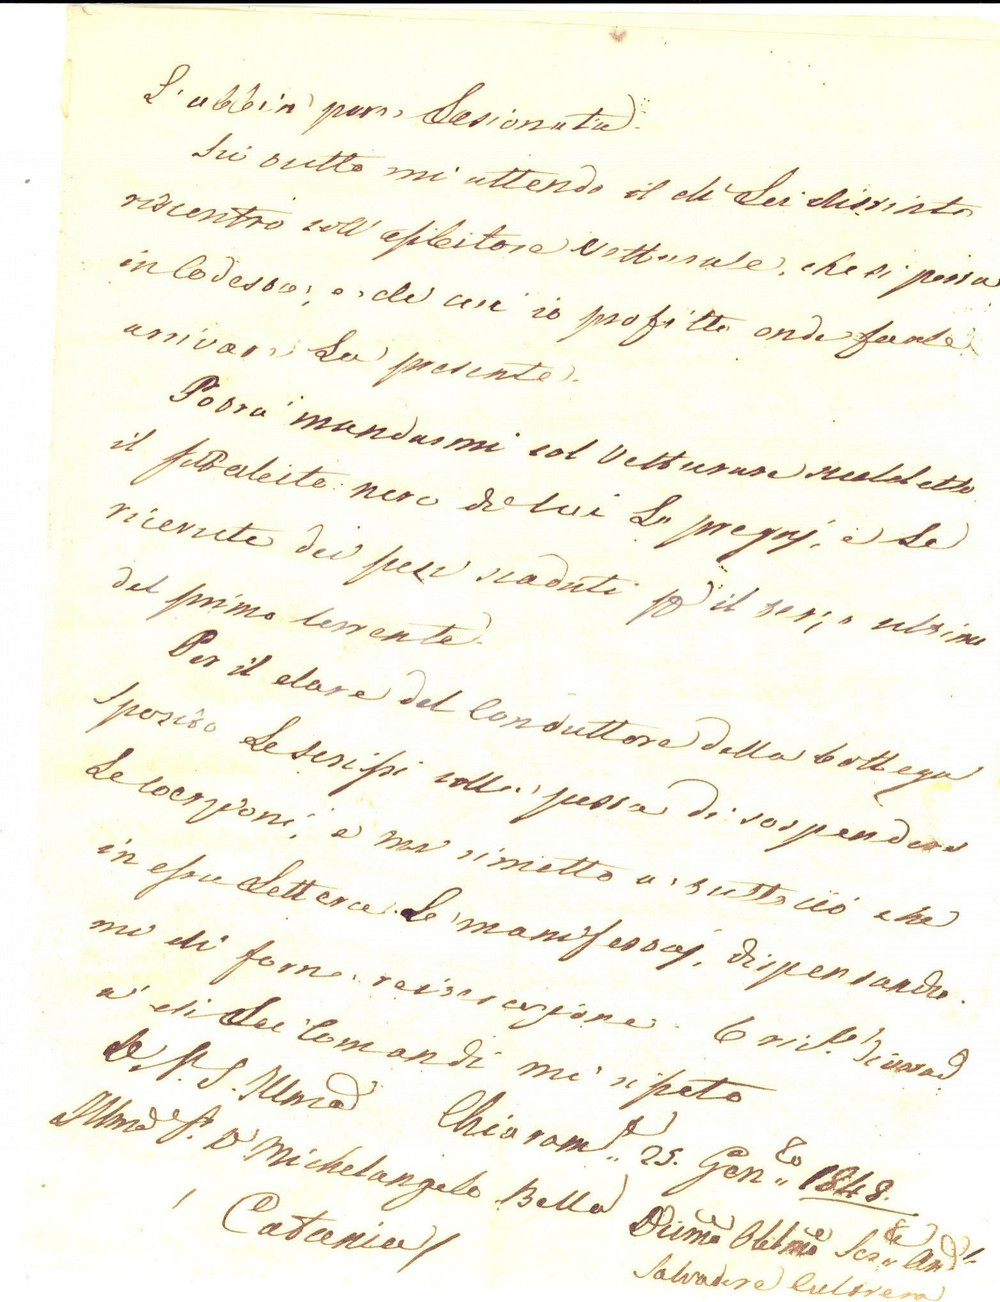 L'abbia per Lesionata.
Sù tutto mi attendo il di Lei distinto
riscontro coll'apportatore Vetturale, che si porta
in Codesta, e del cui io profitto onde farle
arrivare La presente.
Potrà mandarmi col Vetturale suddetto
il nero di lui La pregaj, e Le
ricevute dei pesi scaduti p il terzo ultimo
del primo corrente.
Per il dare del Conduttore della bottega
Sposito Le scrissi colla posta di sospendere
Le locazioni, e mi rimetto a tutto ciò che
in essa Lettera Le manifestaj, dispensando
mi di farne reiterazione. E
a' di Lei Comandi mi ripeto
D. V. S. Illma
Chiaram. 25. Gen. 1848.
Illmo Sr. Dn Michelangelo Bella
Catania
Devmo Oblmo Ser. Am
Salvadore Cultrera